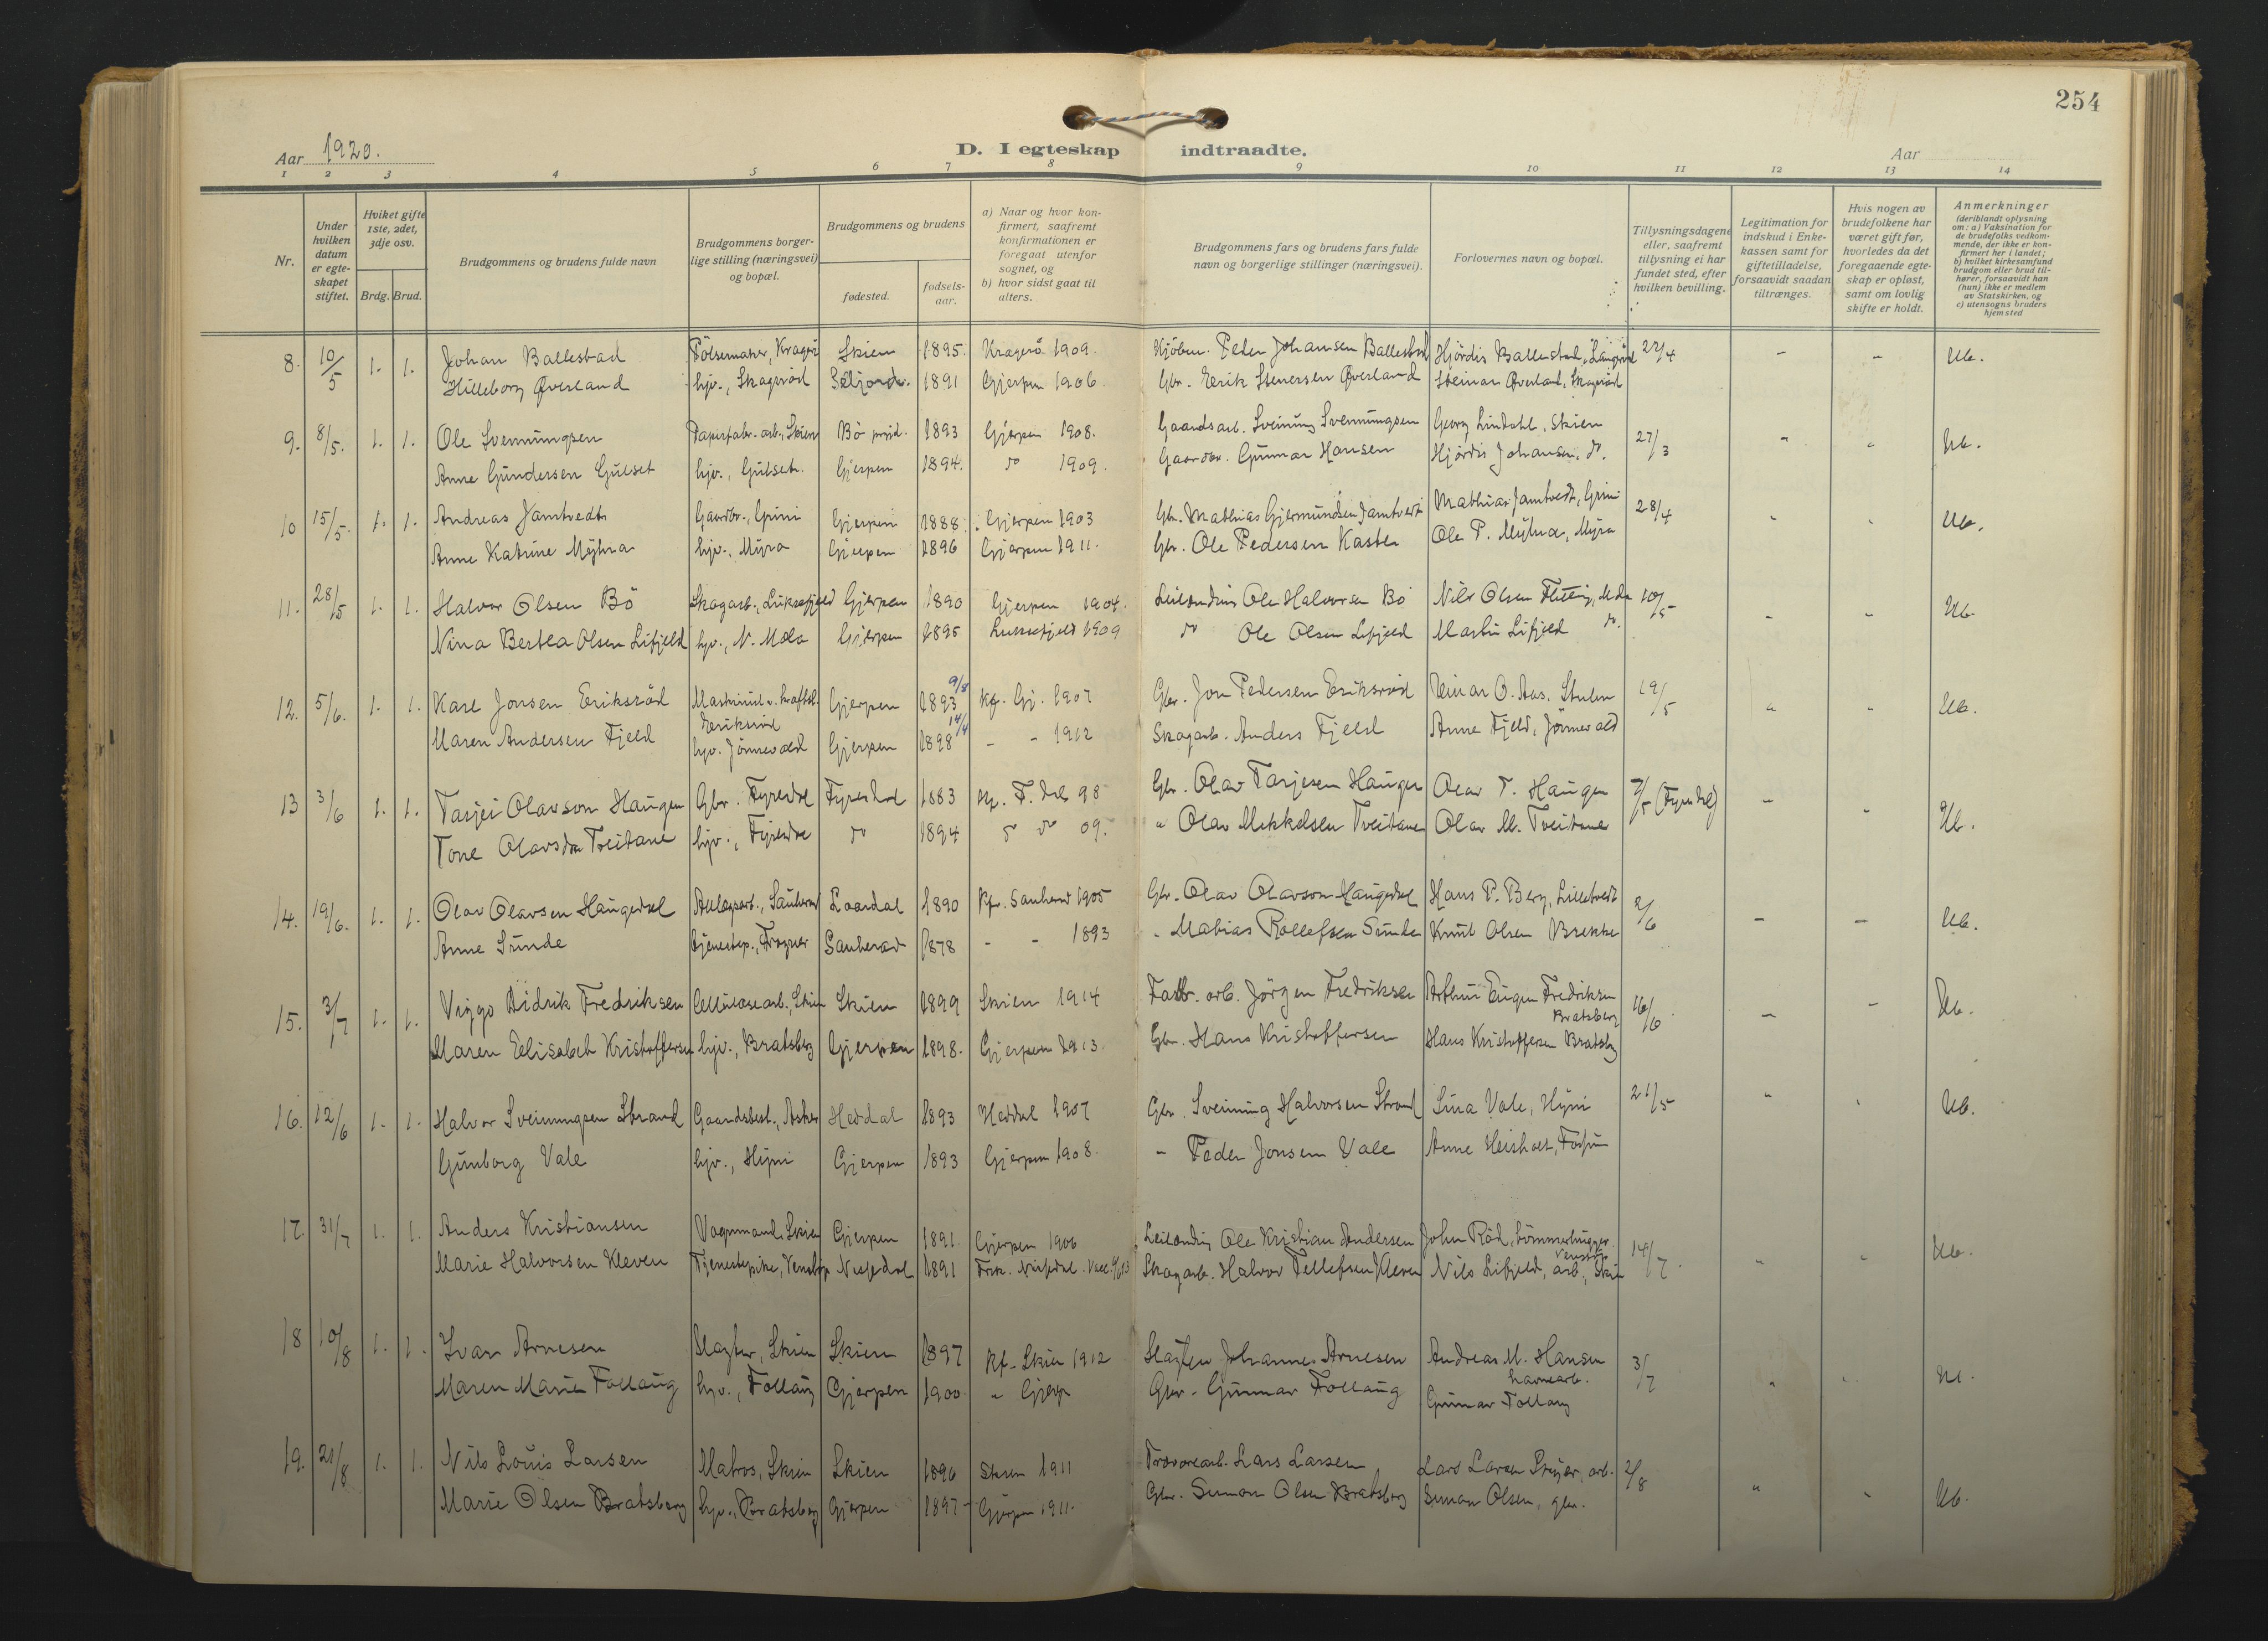 254
Aar 1920.
D. I egteskap indtraadte.
Aar
1 2 3 4 5 6 7 8 9 10 11 12 13 14
Nr.
Under hvilken datum er egteskapet stiftet.
Hviket gifte 1ste, 2det, 3dje osv.
Brdg. Brud.
Brudgommens og brudens fulde navn
Brudgommens borgerlige stilling (næringsvei) og bopæl.
Brudgommens og brudens
fødested.
fødselsaar.
a) Naar og hvor konfirmert, saafremt konfirmationen er foregaat utenfor sognet, og
b) hvor sidst gaat til alters.
Brudgommens fars og brudens fars fulde navn og borgerlige stillinger (næringsvei).
Forlovernes navn og bopæl.
Tillysningsdagene eller, saafremt tillysning ei har fundet sted, efter hvilken bevilling.
Legitimation for indskud i Enkekassen samt for giftetilladelse, forsaavidt saadan tiltrænges.
Hvis nogen av brudefolkene har været gift før, hvorledes da det foregaaende egteskap er opløst, samt om lovlig skifte er holdt.
Anmerkninger (deriblandt oplysning om: a) Vaksination for de brudefolks vedkommende, der ikke er konfirmert her i landet; b) hvilket kirkesamfund brudgom eller brud tilhører, forsaavidt han (hun) ikke er medlem av Statskirken, og c) utensogns bruders hjemsted
8. 10/5 1. 1. Johan Ballestad Pölsemaker, Kragerö Skien 1895. Kragerö 1909. Kjöbm. Peder Johansen Ballestad Hjördis Ballestad, 22/4 - -
Hilleborg Øverland hjv., Skageröd Seljord. 1891 Gjerpen 1906 Gbr. Eerik Stenersen Øverland Steinar Øverland, Skageröd
9. 8/5. 1. 1. Ole Svennungsen Papirfabr.-arb., Skien Bö prgd. 1893 Gjerpen 1908. Gaardsarb. Sveinung Svennungsen Georg Lindahl, Skien 27/3
Anne Gundersen Gulset hjv., Gulset. Gjerpen 1894. do 1909. Gaardbr. Gunnar Hansen Hjördis Johansen, do.
10 15/5. 1. 1. Andreas Jamtvedt Gaardbr., Grini Gjerpen 1888. Gjerpen 1903 Gbr. Mathias Gjermundsen Jamtvedt Mathias Jamtvedt, Grini 28/4
Anne Katrine Myhra hjv., Myra Gjerpen 1896 Gjerpen 1911. Gbr. Ole Pedersen Kasten Ole P. Myhra, Myra
11. 28/5 1. 1. Halvor Olsen Bö Skogarb., Luksefjeld Gjerpen 1890 Gjerpen 1904. Leilænding Ole Halvorsen Bö Nils Olsen 10/5
Nina Bertea Olsen Lifjeld hjv., N. Mæla Gjerpen 1895 Luksefjeld 1909 do Ole Olsen Lifjeld Martin Lifjeld do.
12. 5/6. 1. 1. Karl Jonsen Eriksröd Maskinist v. kraftst. Eriksröd Gjerpen 9/8 1893 Kf. Gj. 1907 Gbr. Jon Pedersen Eriksröd Einar O. Aas, 19/5
Maren Andersen Fjeld hjv. Jönnevald Gjerpen 14/4 1898 - - 1912 Skogarb. Anders Fjeld Anne Fjeld, Jönnevald
13 3/6 1. 1. Tarjei Olavson Haugen Gbr. Fyresdal Fyresdal 1883 Kf. F.dal 98 Gbr. Olav Tarjesen Haugen Olav T. Haugen 2/5 (Fyresdal) -
Tone Olavsdtr Tveitane hjv., Fyresdal do 1894 do do 09. " Olav Mikkelsen Tveitane Olav M. Tveitane
14. 19/6. 1. 1. Olav Olavsen Haugedal Anlægsarb., Sauherad Laardal 1890 Kf. Sauherad 1905 Gbr. Olav Olavson Haugedal Hans P. Berg, Lilletvedt 2/6 - -
Anne Sunde tjenestep., Frogner Sauherad 1878 - - 1893 - Mathias Rollefsen Sunde Knut Olsen Brekke
15. 3/7 1. 1. Viggo Didrik Fredriksen Cellulosearb., Skien Skien 1899 Skien 1914 Fabr. arb. Jörgen Fredriksen Arthur Eugen Fredriksen Bratsberg 16/6 - -
Maren Elisabeth Kristoffersen hjv., Bratsberg Gjerpen 1898. Gjerpen 1913. Gbr. Hans Kristoffersen Hans Kristoffersen Bratsbg
16. 12/6 1. 1. Halvor Sveinungsen Strand Gaardsbest., Asker Heddal 1893 Heddal 1907 Gbr. Sveinung Halvorsen Strand Lina Vale, Hyni 21/5
Gunborg Vale hjv., Hyni Gjerpen 1893 Gjerpen 1908. - Peder Jonsen Vale Anne Heisholt, Fossum
17. 31/7 1. 1. Anders Kristiansen Vognmand, Skien Gjerpen 1891 Gjerpen 1906 Leilænding Ole Kristian Andersen John Röd, tömmerhugger Venstöp 14/7
Marie Halvorsen Kleven Tjenestepike, Venstöp Nissedal 1891 Nissedal. Skogarb. Halvor Tellefsen Kleven Nils Lifjeld, arb., Skien
18 10/8 1. 1. Ivar Arnesen Slagter, Skien Skien 1897 Kf. Skien 1912 Slagter Johannes Arnesen Andreas M. Hansen havnearb. 3/7
Maren Marie Follaug hjv., Follaug Gjerpen 1900 " Gjerp Gbr. Gunnar Follaug Gunnar Follaug
19. 21/8 1. 1. Nils Louis Larsen Matros, Skien Skien 1896 Skien 1911 Trævarearb. Lars Larsen Lars Larsen arb. 2/8
Marie Olsen Bratsberg hjv., Bratsberg Gjerpen 1897 Gjerpen 1911. Gbr. Simon Olsen Bratsberg Simon Olsen, gbr.